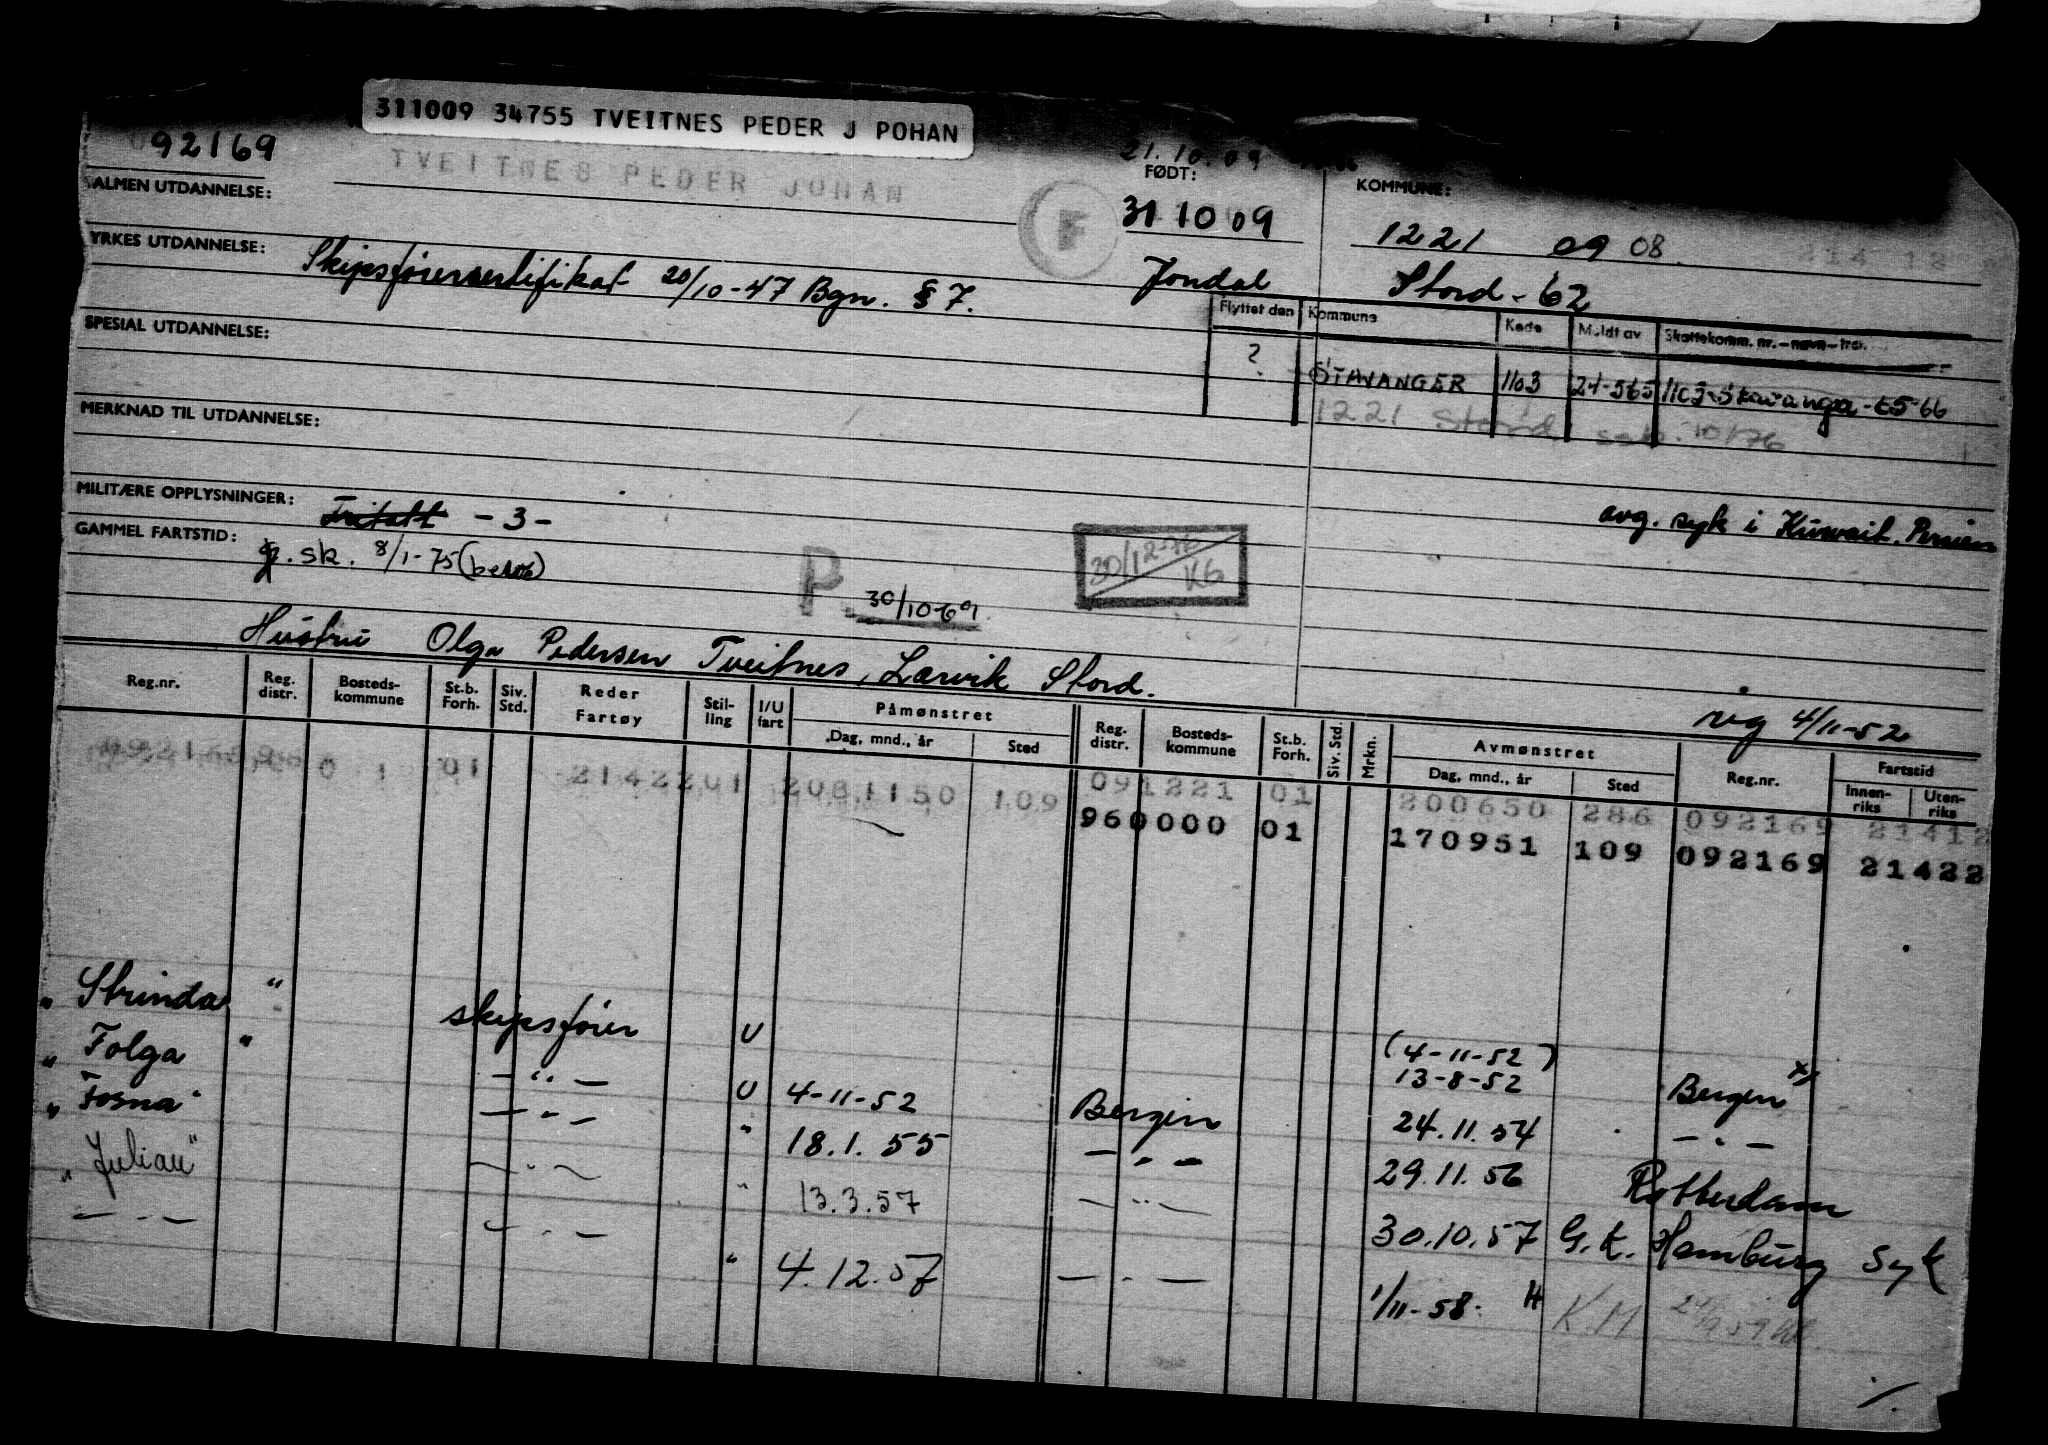 311009 34755 TVEITNES PEDER J POHAN
92169
TVEITNES PEDER JOHAN
21.10.09
FØDT:
KOMMUNE:
ALMEN UTDANNELSE:
F
31 10 09
1221 09 08.
YRKES UTDANNELSE:
Skipsførersertifikat 20/10-47 Bgn. § 7.
Jondal
Stord - 62
Flyttet den Kommune Kode Meldt av Skattekomm. nr. - navn - trar.
SPESIAL UTDANNELSE:
? STAVANGER 1103 21-565 1103 Stavanger - 65-66
1221 Stord 10/76
MERKNAD TIL UTDANNELSE:
MILITÆRE OPPLYSNINGER: Fritatt - 3 -
avg. syk i Kuwait. Persien
GAMMEL FARTSTID:
g. sk. 8/1-75
30/12-76
KG
P. 30/10-69
Hustru Olga Pedersen Tveitnes, Lervik Stord.
vg 4/11-52
Reg.nr. Reg. distr. Bosteds-kommune St.b. Forh. Siv. Std. Reder Fartøy Stil-ling I/U fart Påmønstret Dag, mnd., år Sted Reg. distr. Bosteds-kommune St.b. Forh. Siv. Std. Mrkn. Avmønstret Dag, mnd., år Sted Reg.nr. Fartstid Innen-riks Uten-riks
01 21422 01 2081150 109 091221 01 200650 286 092169 21412
960000 01 170951 109 092169 21422
" Strinda " skipsfører U (4-11-52)
13-8-52 Bergen x)
" Folga " — " — U 4-11-52 Bergen 24.11.54 — " —
" Fosna " — " — " 18.1.55 — " — 29.11.56 Rotterdam
" Julian " — " — " 13.3.57 — " — 30.10.57 G.K. Hamburg Syk
— " — — " — " 4.12.57 — " — 1/11-58. H K.H